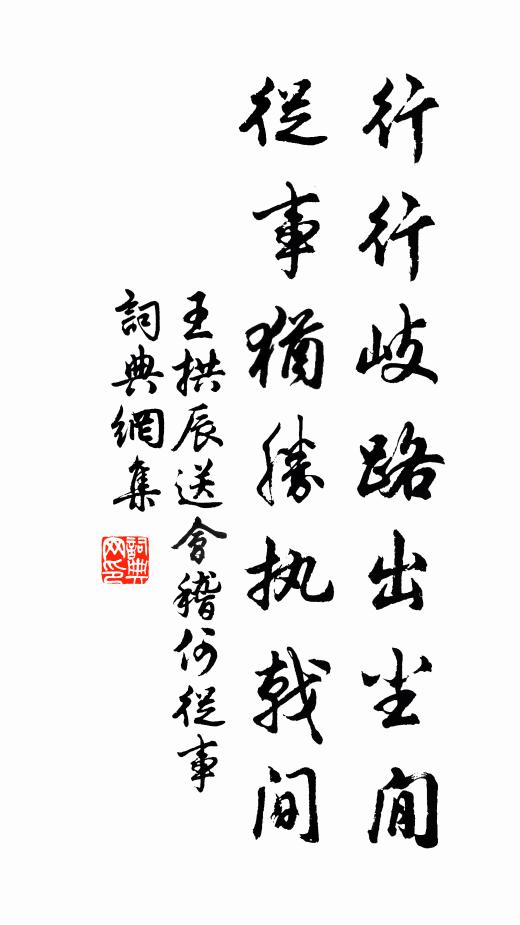 行行歧路出尘间
従事猶勝执戟间
王拱辰送會稽何従事
詞典網集
詞典网印